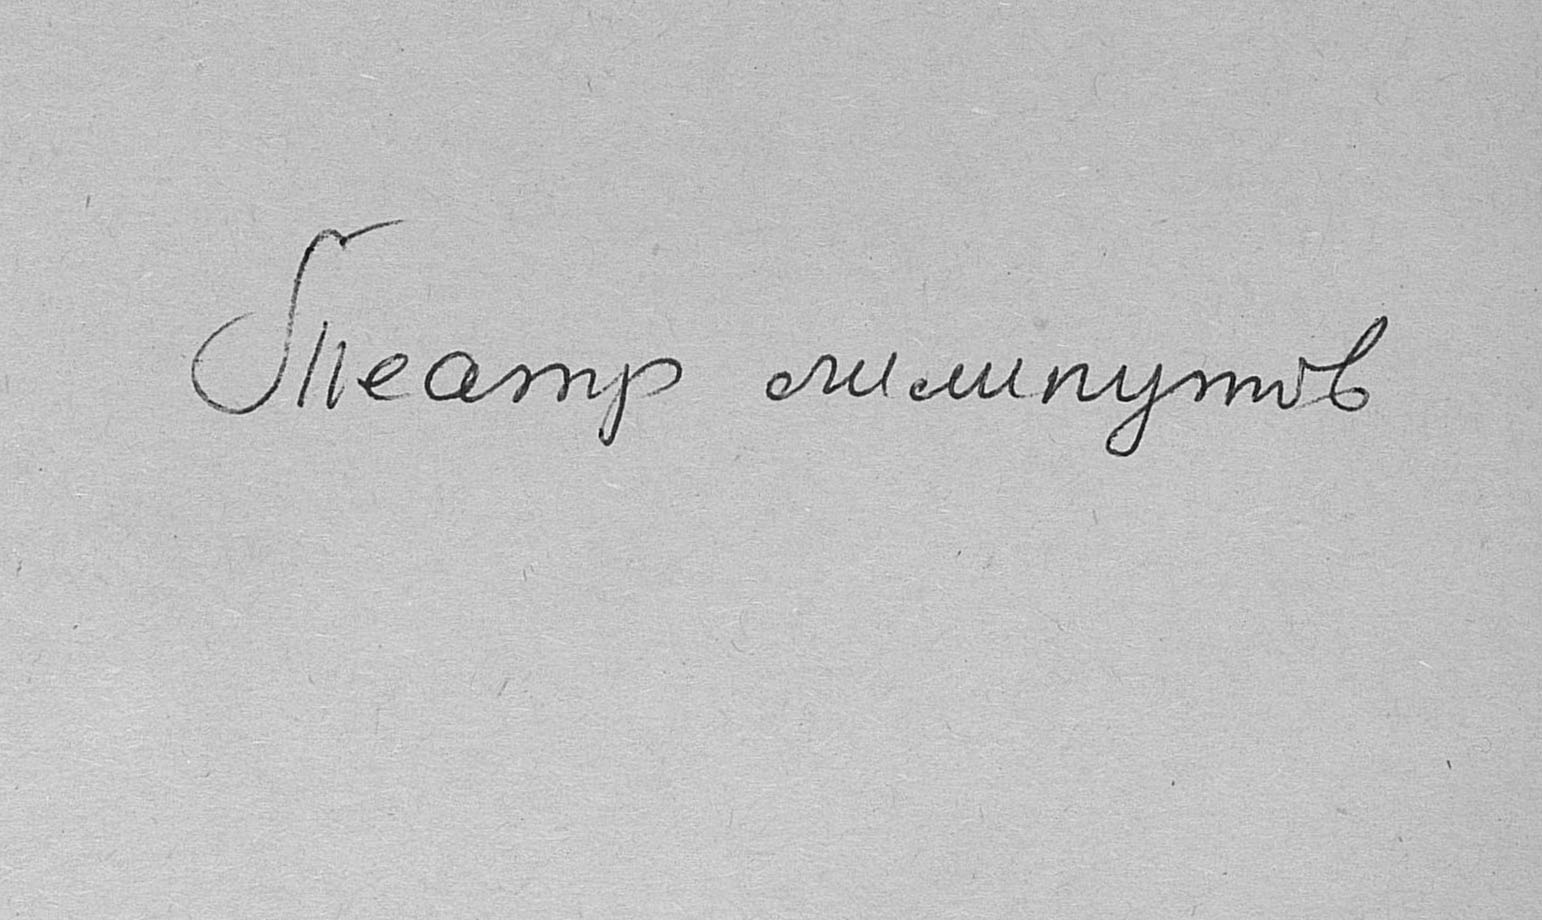 Театр лилипутов